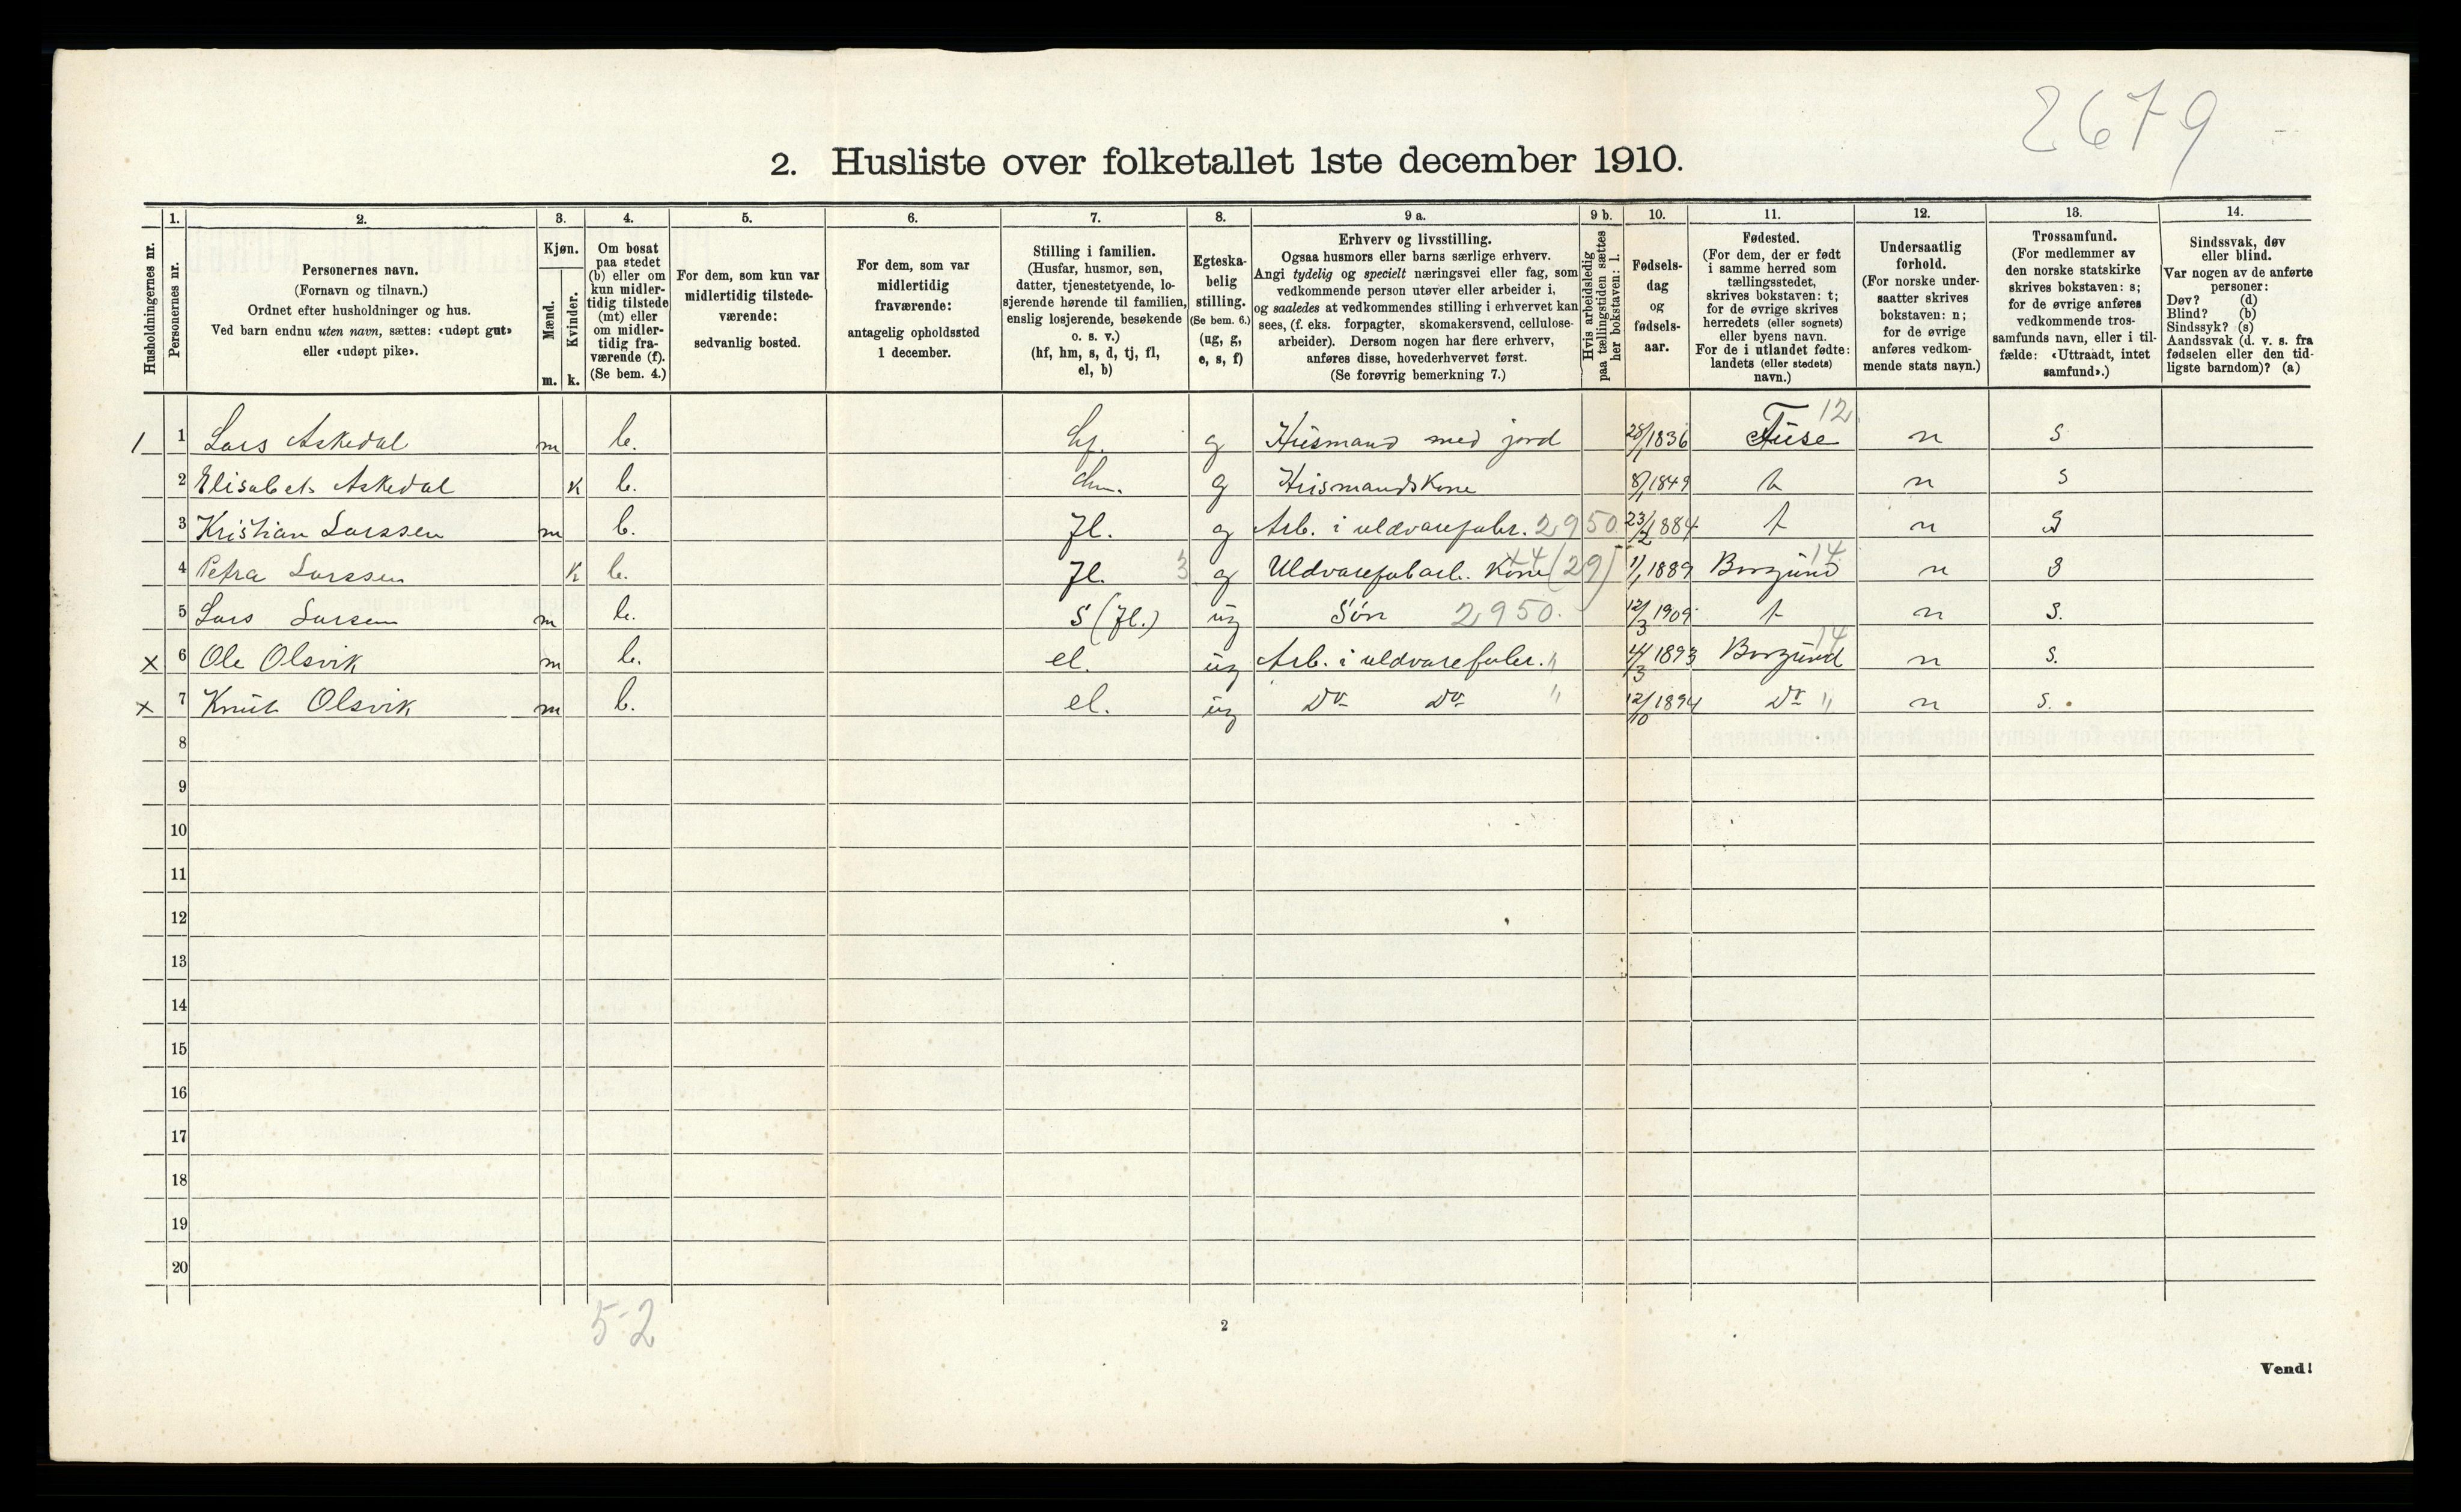 2679
2. Husliste over folketallet 1ste december 1910.
1. 2. 3. 4. 5. 6. 7. 8. 9 a. 9 b. 10. 11. 12. 13. 14.
Husholdningernes nr.
Personernes nr.
Personernes navn.
(Fornavn og tilnavn.)
Ordnet efter husholdninger og hus.
Ved barn endnu uten navn, sættes: «udøpt gut»
eller «udøpt pike».
Kjøn.
Mænd.
Kvinder.
m. k.
Om bosat
paa stedet
(b) eller om
kun midler-
tidig tilstede
(mt) eller
om midler-
tidig fra-
værende (f).
(Se bem. 4.)
For dem, som kun var
midlertidig tilstede-
værende:
sedvanlig bosted.
For dem, som var
midlertidig
fraværende:
antagelig opholdssted
1 december.
Stilling i familien.
(Husfar, husmor, søn,
datter, tjenestetyende, lo-
sjerende hørende til familien,
enslig losjerende, besøkende
o. s. v.)
(hf, hm, s, d, tj, fl,
el, b)
Egteska-
belig
stilling.
(Se bem. 6.)
(ug, g,
e, s, f)
Erhverv og livsstilling.
Ogsaa husmors eller barns særlige erhverv.
Angi tydelig og specielt næringsvei eller fag, som
vedkommende person utøver eller arbeider i,
og saaledes at vedkommendes stilling i erhvervet kan
sees, (f. eks. forpagter, skomakersvend, cellulose-
arbeider). Dersom nogen har flere erhverv,
anføres disse, hovederhvervet først.
(Se forøvrig bemerkning 7.)
Hvis arbeidsledig
paa tællingstiden sættes
her bokstaven: l.
Fødsels-
dag
og
fødsels-
aar.
Fødested.
(For dem, der er født
i samme herred som
tællingsstedet,
skrives bokstaven: t;
for de øvrige skrives
herredets (eller sognets)
eller byens navn.
For de i utlandet fødte:
landets (eller stedets)
navn.)
Undersaatlig
forhold.
(For norske under-
saatter skrives
bokstaven: n;
for de øvrige
anføres vedkom-
mende stats navn.)
Trossamfund.
(For medlemmer av
den norske statskirke
skrives bokstaven: s;
for de øvrige anføres
vedkommende tros-
samfunds navn, eller i til-
fælde: «Uttraadt, intet
samfund».)
Sindssvak, døv
eller blind.
Var nogen av de anførte
personer:
Døv? (d)
Blind? (b)
Sindssyk? (s)
Aandssvak (d. v. s. fra
fødselen eller den tid-
ligste barndom)? (a)
12
1 1 Lars Askedal m b. hf. g Husmand med jord 28/1 1836 Fuse n s
2 Elisabet Askedal k b. hm. g Husmandskone 8/1 1849 t n s
3 Kristian Larssen m b. fl. g Arb. i uldvarefabr. 2950 23/2 1884 t n s
4 Petra Larssen k b. fl. 3 g Uldvarefabarb. Kone (29) 1/1 1889 Borgund 14 n s
5 Lars Larsen m b. s (fl.) ug Søn 2950. 12/3 1909 t n s.
x 6 Ole Olsvik m b. el. ug Arb. i uldvarefabr. " 4/3 1893 Borgund 14 n s.
x 7 Knut Olsvik m b. el. ug Do Do " 12/10 1894 Do " n s.
8
9
10
11
12
13
14
15
16
17
18
19
20
5-2
2
Vend!